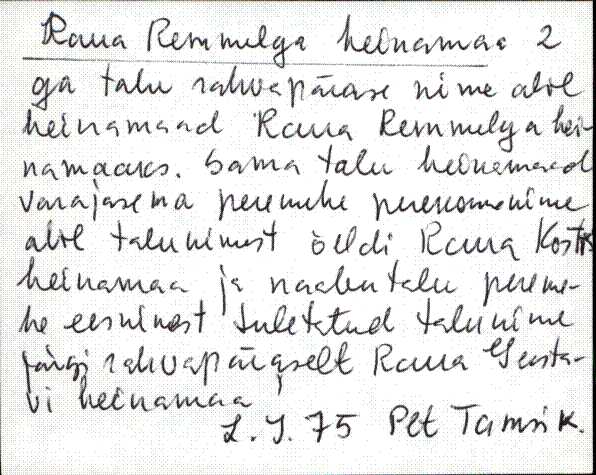 Raua Remmelga heinamaa 2
ga talu rahvapärase nime abil
heinamaad Raua Remmelga hei-
namaaks. Sama talu heinamaad
varajasema peremehe perekonnanime
abil talunimest öeldi Raua Kostis
heinamaa ja naabritalu pereme-
he eesnimest tuletatud talunime
järgi rahvapäraselt Raua Gusta-
vi heinamaa
L. J. 75 Pet Tamsik.